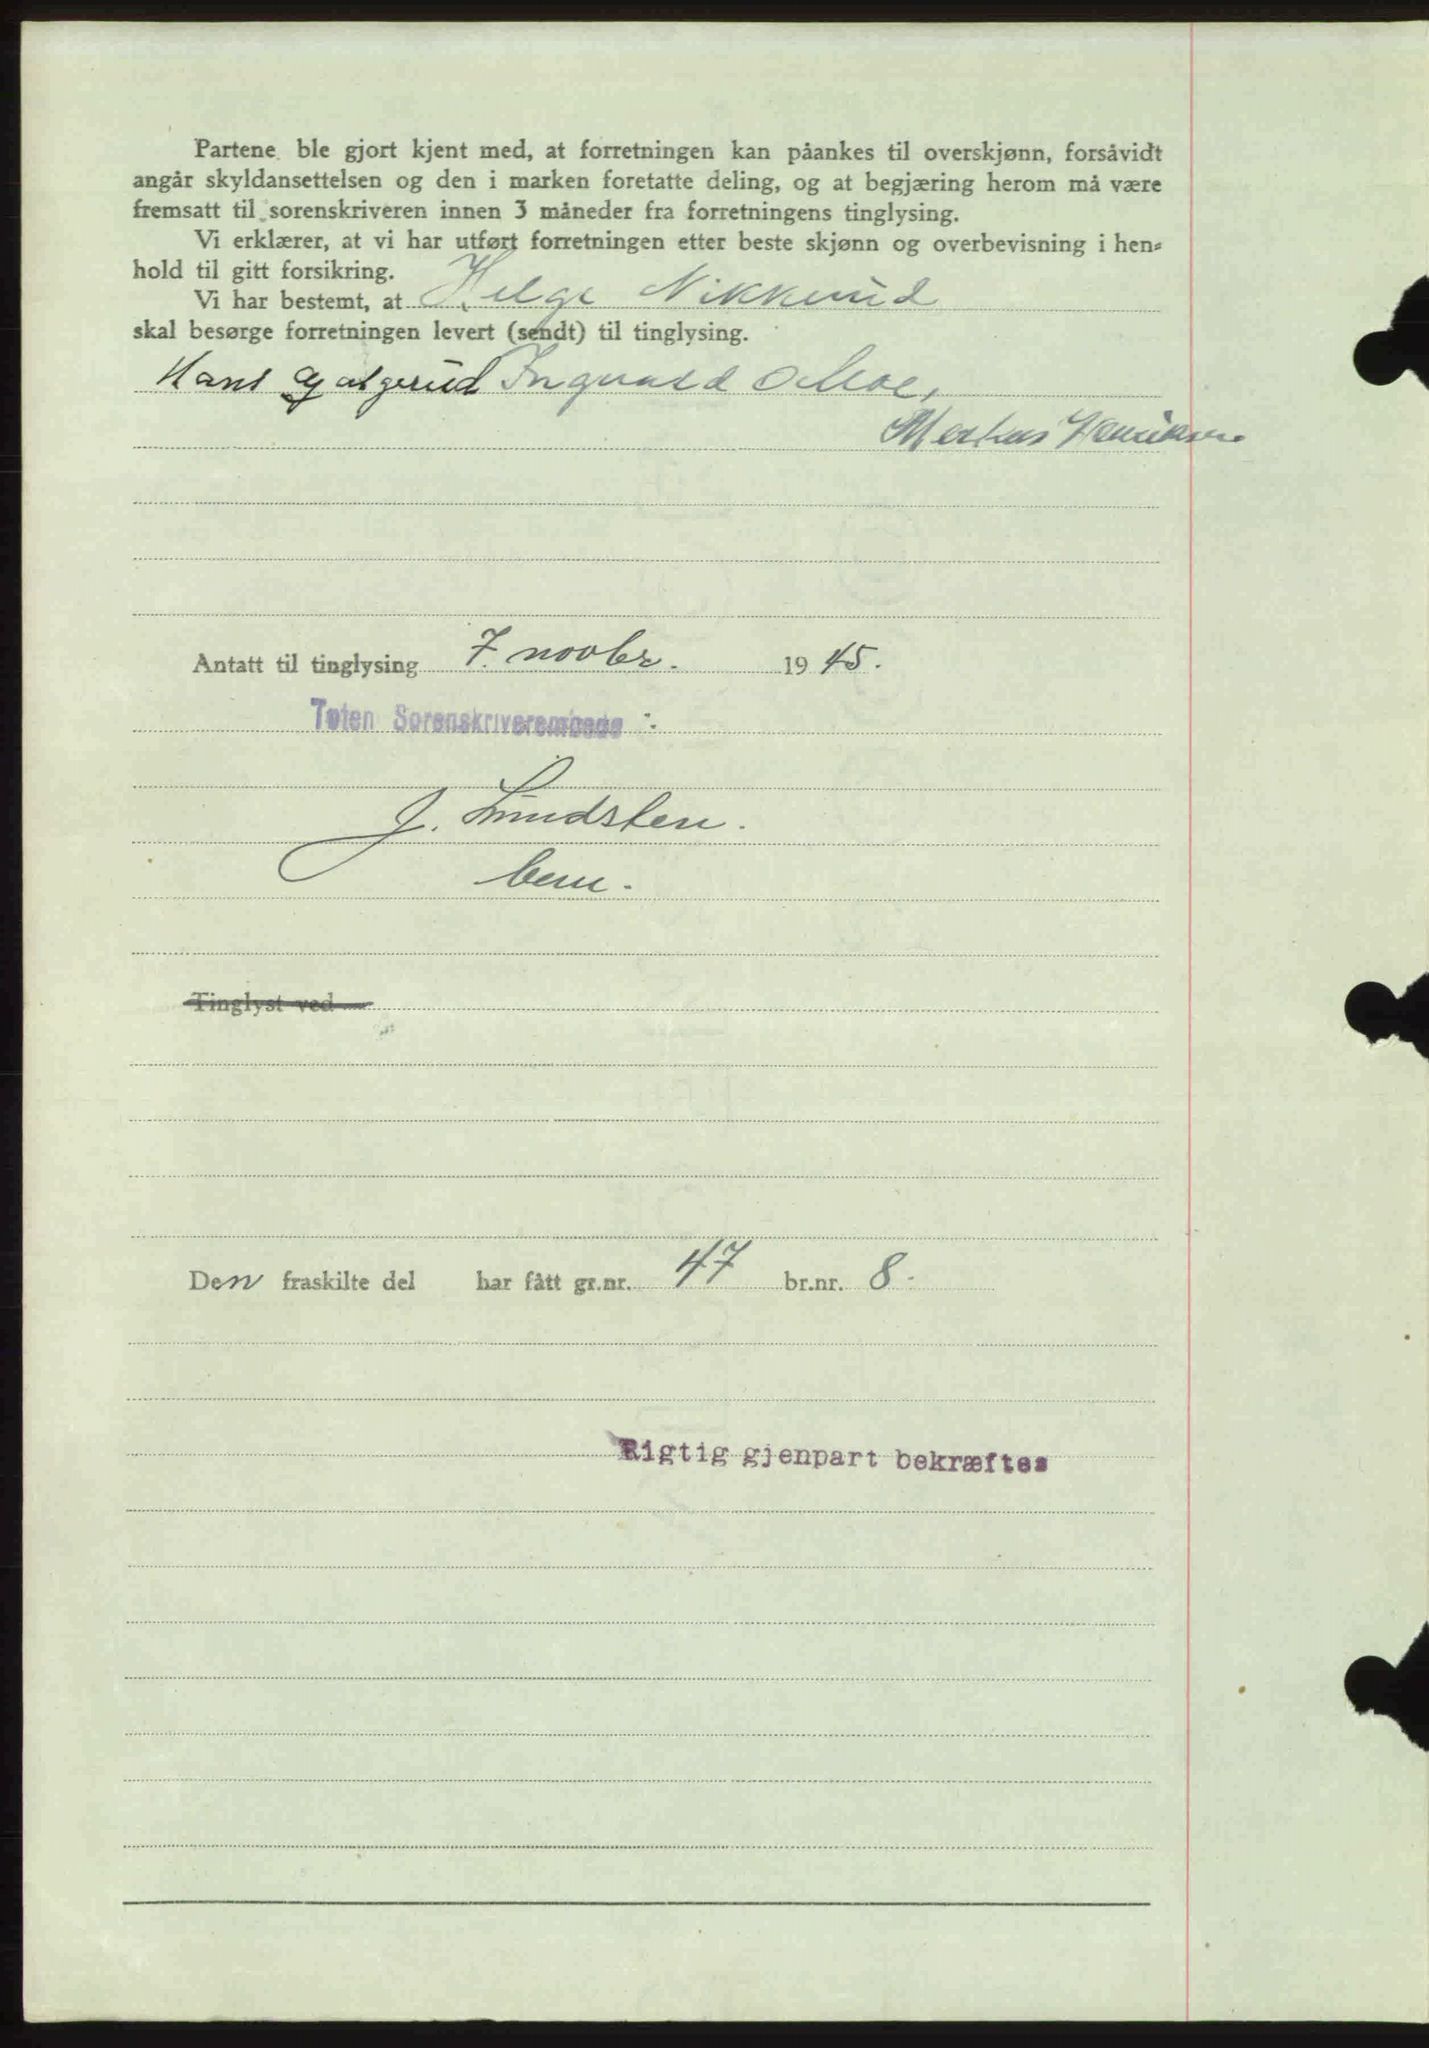 Partene ble gjort kjent med, at forretningen kan påankes til overskjønn, forsåvidt
angår skyldansettelsen og den i marken foretatte deling, og at begjæring herom må være
fremsatt til sorenskriveren innen 3 måneder fra forretningens tinglysing.
Vi erklærer, at vi har utført forretningen etter beste skjønn og overbevisning i hen-
hold til gitt forsikring.
Vi har bestemt, at Helge Nikkerud
skal besørge forretningen levert (sendt) til tinglysing.
Hans Galgerud Ingvald Moe,
Markus Henriksen
Antatt til tinglysing 7. novbr. 1945.
Toten Sorenskriverembede :
J. Lundsten.
bem.
Tinglyst ved
Den fraskilte del har fått gr.nr. 47 br.nr. 8.
Rigtig gjenpart bekræftes